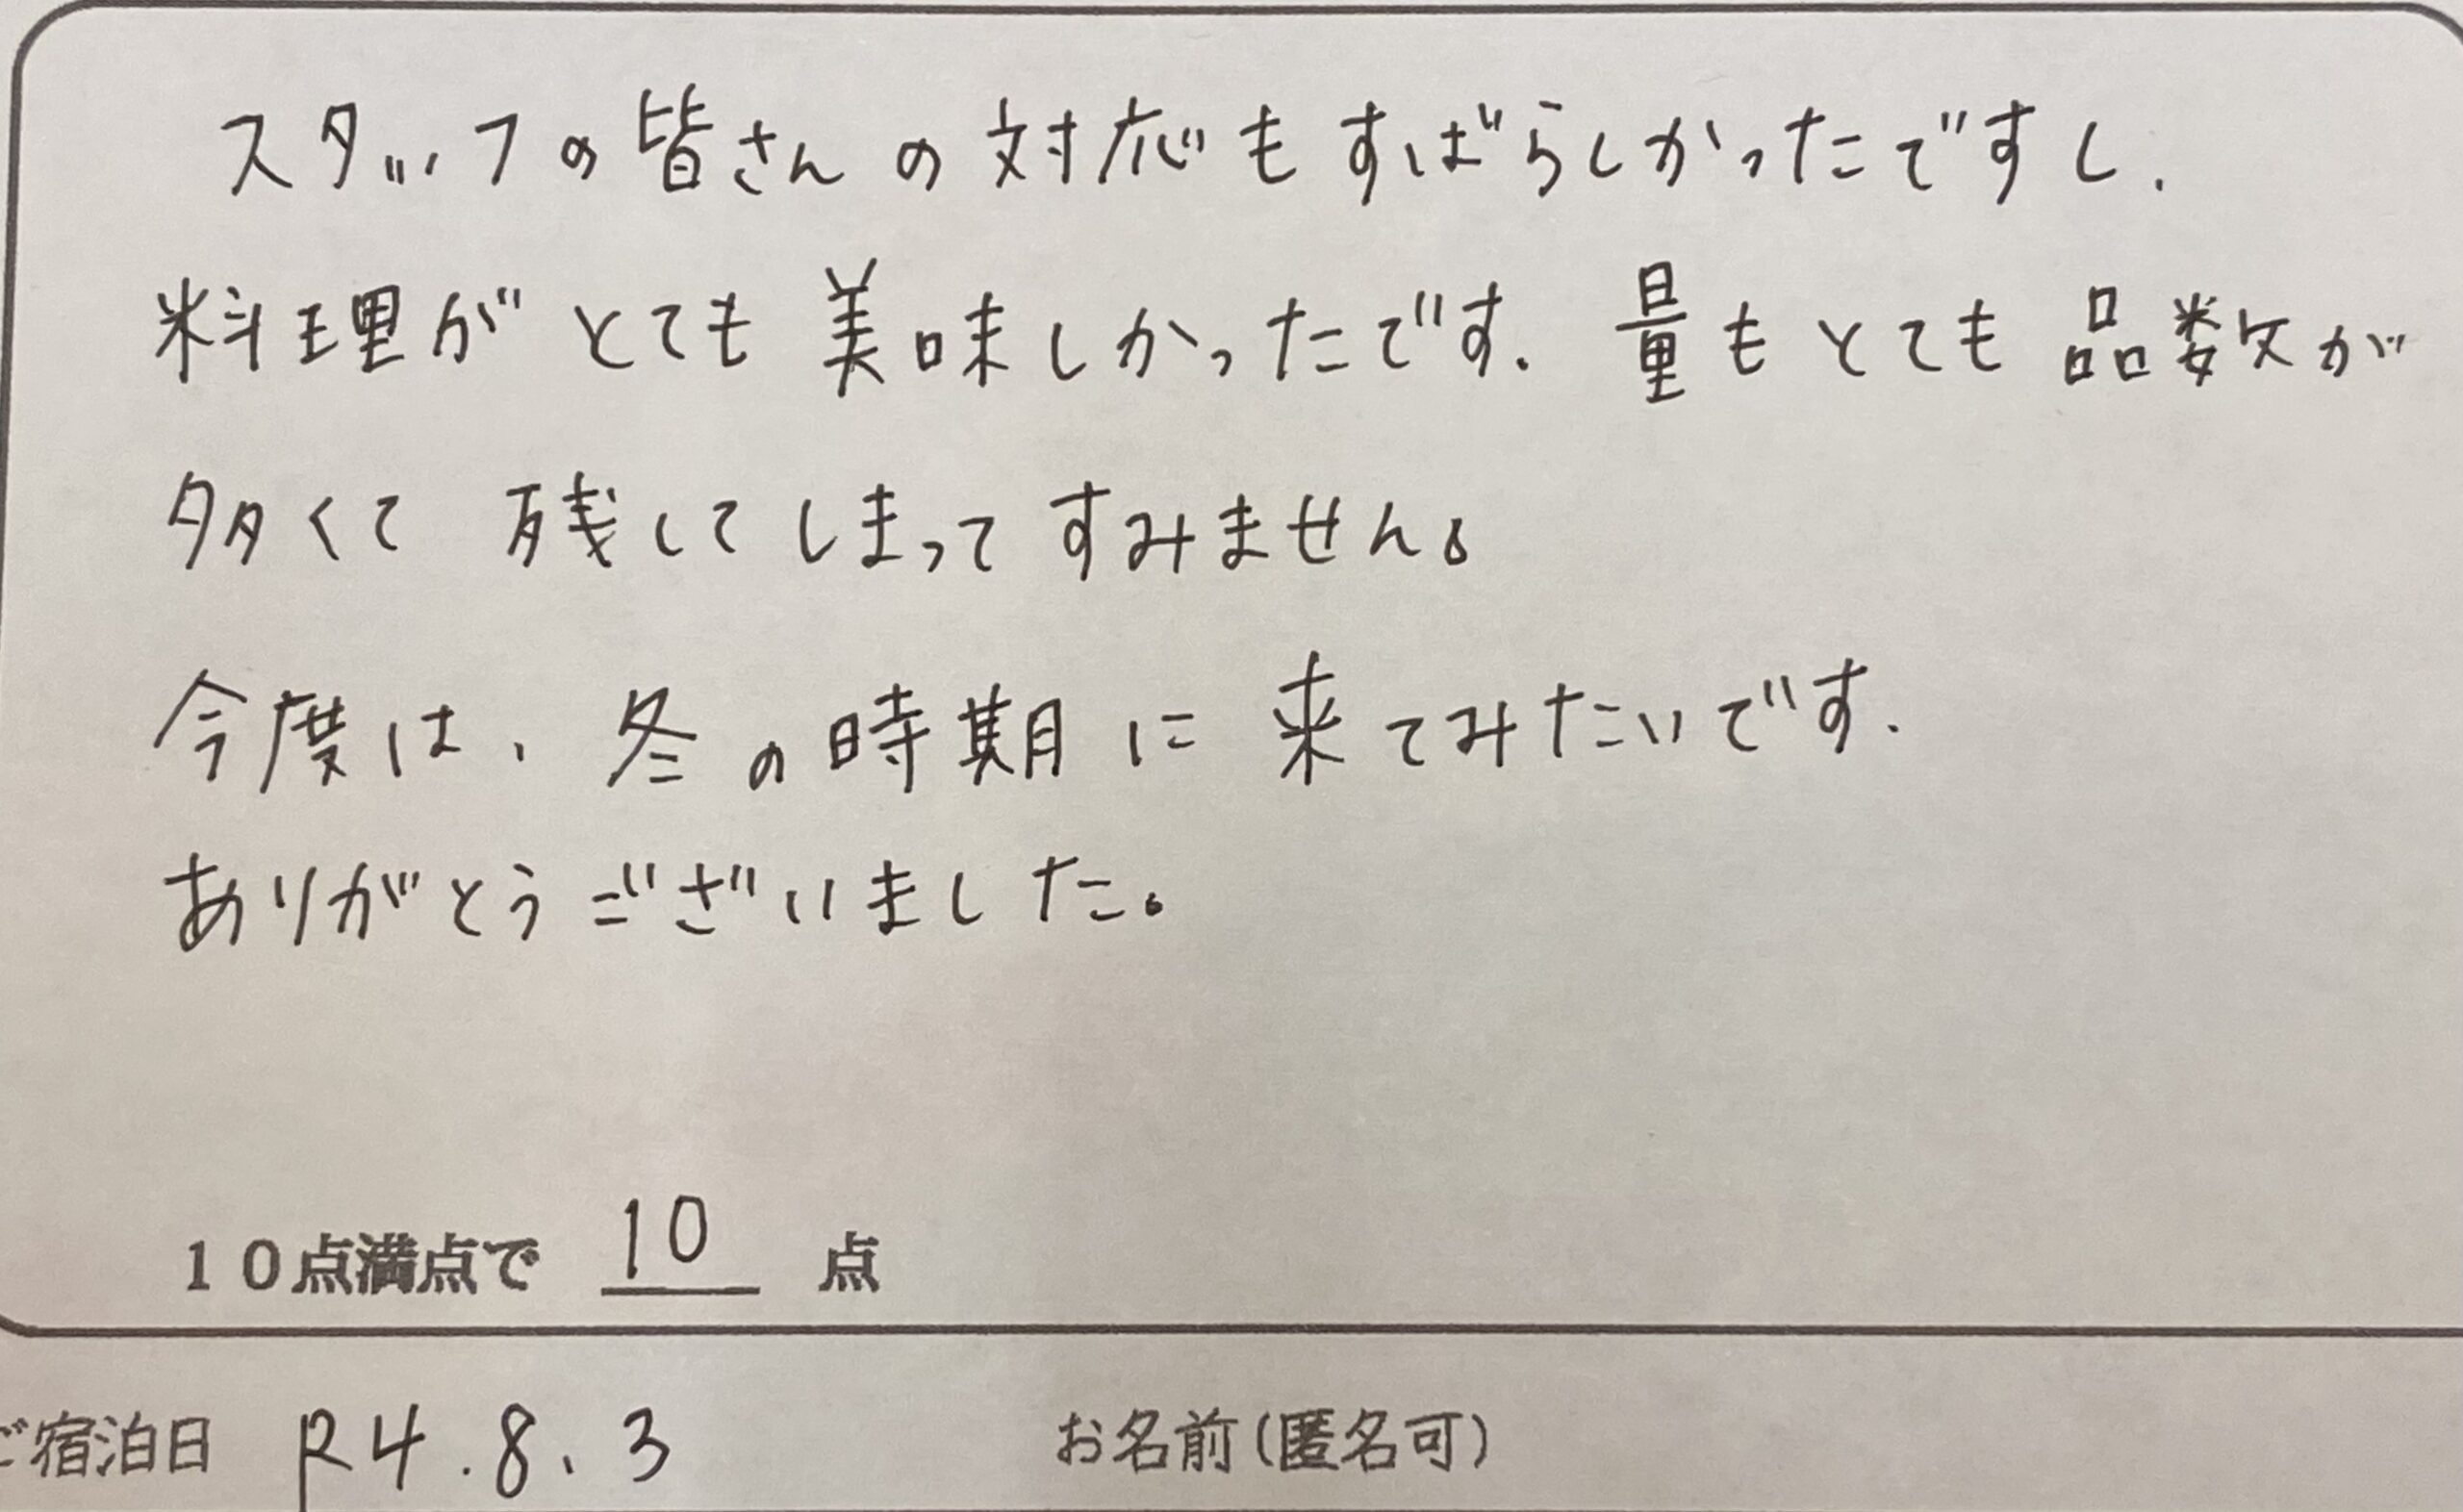 スタッフの皆さんの対応もすばらしかったですし.
料理がとても美味しかったです. 量もとても品数が
多くて 残してしまってすみません。
今度は、冬の時期に来てみたいです.
ありがとうございました。
10点満点で 10 点
ご宿泊日 R4.8.3 お名前(匿名可)